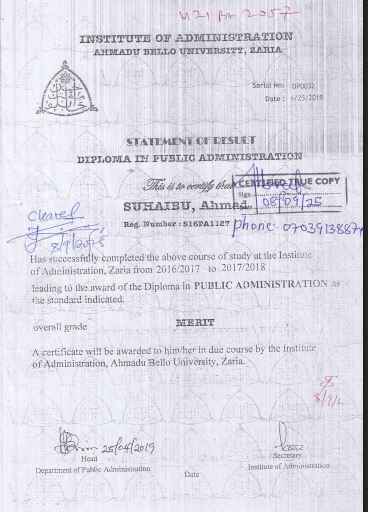 INSTITUTE OF ADMINISTRATION
AHMADU BELLO UNIVERSITY, ZARIA
Serial No: DP0037
Date: 4/25/2019
STATEMENT OF RESULT
DIPLOMA IN PUBLIC ADMINISTRATION
This is to certify that
CERTIFIED TRUE COPY
Sign
08/09/25
SUHAIBU, Ahmad
Reg. Number: S16PA1127
phone: 0703913887
8/9/2025
Has successfully completed the above course of study at the Institute
of Administration, Zaria from 2016/2017 to 2017/2018
leading to the award of the Diploma in PUBLIC ADMINISTRATION as
the standard indicated.
overall grade MERIT
A certificate will be awarded to him/her in due course by the Institute
of Administration, Ahmadu Bello University, Zaria.
25/04/2019
Head
Department of Public Administration
Secretary
Institute of Administration
Date